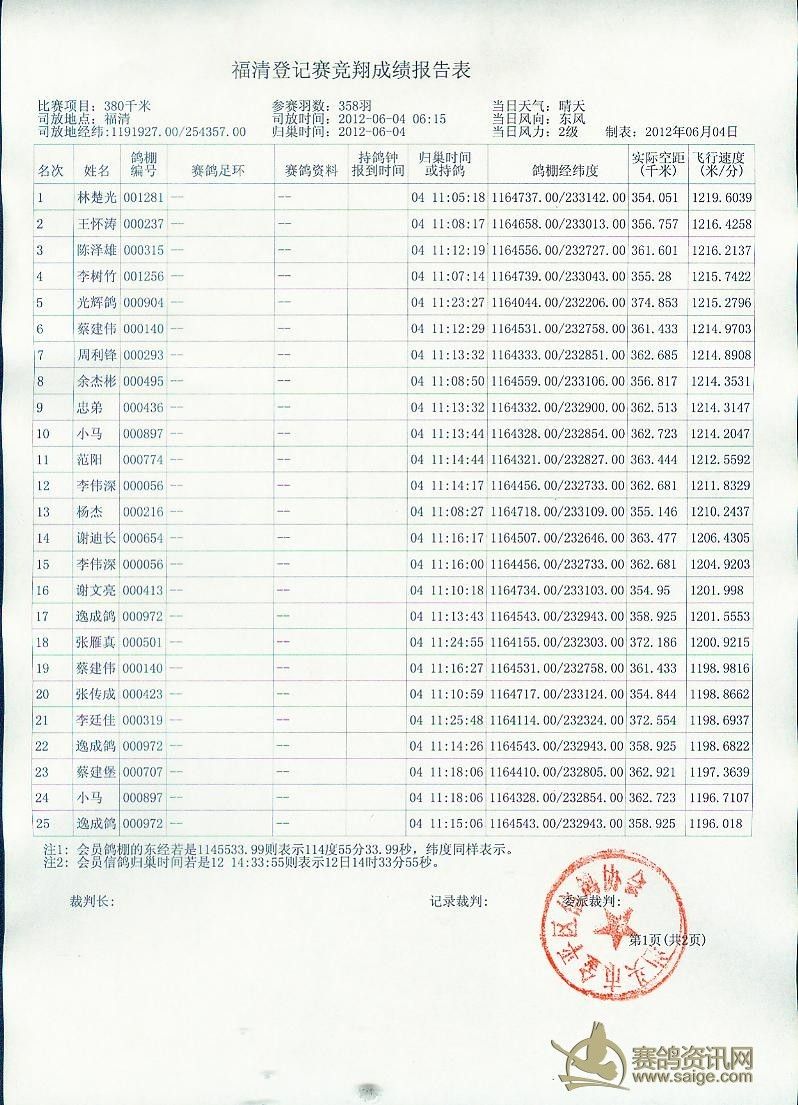 福清登记赛竞翔成绩报告表
比赛项目: 380千米 参赛羽数: 358羽 当日天气: 晴天
司放地点: 福清 司放时间: 2012-06-04 06:15 当日风向: 东风
司放地经纬:1191927.00/254357.00 归巢时间: 2012-06-04 当日风力: 2级 制表: 2012年06月04日
名次 姓名 鸽棚编号 赛鸽足环 赛鸽资料 持鸽钟报到时间 归巢时间或持鸽 鸽棚经纬度 实际空距(千米) 飞行速度(米/分)
1 林楚光 001281 -- -- 04 11:05:18 1164737.00/233142.00 354.051 1219.6039
2 王怀涛 000237 -- -- 04 11:08:17 1164658.00/233013.00 356.757 1216.4258
3 陈泽雄 000315 -- -- 04 11:12:19 1164556.00/232727.00 361.601 1216.2137
4 李树竹 001256 -- -- 04 11:07:14 1164739.00/233043.00 355.28 1215.7422
5 光辉鸽 000904 -- -- 04 11:23:27 1164044.00/232206.00 374.853 1215.2796
6 蔡建伟 000140 -- -- 04 11:12:29 1164531.00/232758.00 361.433 1214.9703
7 周利锋 000293 -- -- 04 11:13:32 1164333.00/232851.00 362.685 1214.8908
8 余杰彬 000495 -- -- 04 11:08:50 1164559.00/233106.00 356.817 1214.3531
9 忠弟 000436 -- -- 04 11:13:32 1164332.00/232900.00 362.513 1214.3147
10 小马 000897 -- -- 04 11:13:44 1164328.00/232854.00 362.723 1214.2047
11 范阳 000774 -- -- 04 11:14:44 1164321.00/232827.00 363.444 1212.5592
12 李伟深 000056 -- -- 04 11:14:17 1164456.00/232733.00 362.681 1211.8329
13 杨杰 000216 -- -- 04 11:08:27 1164718.00/233109.00 355.146 1210.2437
14 谢迪长 000654 -- -- 04 11:16:17 1164507.00/232646.00 363.477 1206.4305
15 李伟深 000056 -- -- 04 11:16:00 1164456.00/232733.00 362.681 1204.9203
16 谢文亮 000413 -- -- 04 11:10:18 1164734.00/233103.00 354.95 1201.998
17 逸成鸽 000972 -- -- 04 11:13:43 1164543.00/232943.00 358.925 1201.5553
18 张雁真 000501 -- -- 04 11:24:55 1164155.00/232303.00 372.186 1200.9215
19 蔡建伟 000140 -- -- 04 11:16:27 1164531.00/232758.00 361.433 1198.9816
20 张传成 000423 -- -- 04 11:10:59 1164717.00/233124.00 354.844 1198.8662
21 李廷佳 000319 -- -- 04 11:25:48 1164114.00/232324.00 372.554 1198.6937
22 逸成鸽 000972 -- -- 04 11:14:26 1164543.00/232943.00 358.925 1198.6822
23 蔡建堡 000707 -- -- 04 11:18:06 1164410.00/232805.00 362.921 1197.3639
24 小马 000897 -- -- 04 11:18:06 1164328.00/232854.00 362.723 1196.7107
25 逸成鸽 000972 -- -- 04 11:15:06 1164543.00/232943.00 358.925 1196.018
注1: 会员鸽棚的东经若是1145533.99则表示114度55分33.99秒，纬度同样表示。
注2: 会员信鸽归巢时间若是12 14:33:55则表示12日14时33分55秒。
裁判长: 记录裁判: 委派裁判:
第1页(共2页)
汕头市金平区信鸽协会
赛鸽资讯网
www.saige.com